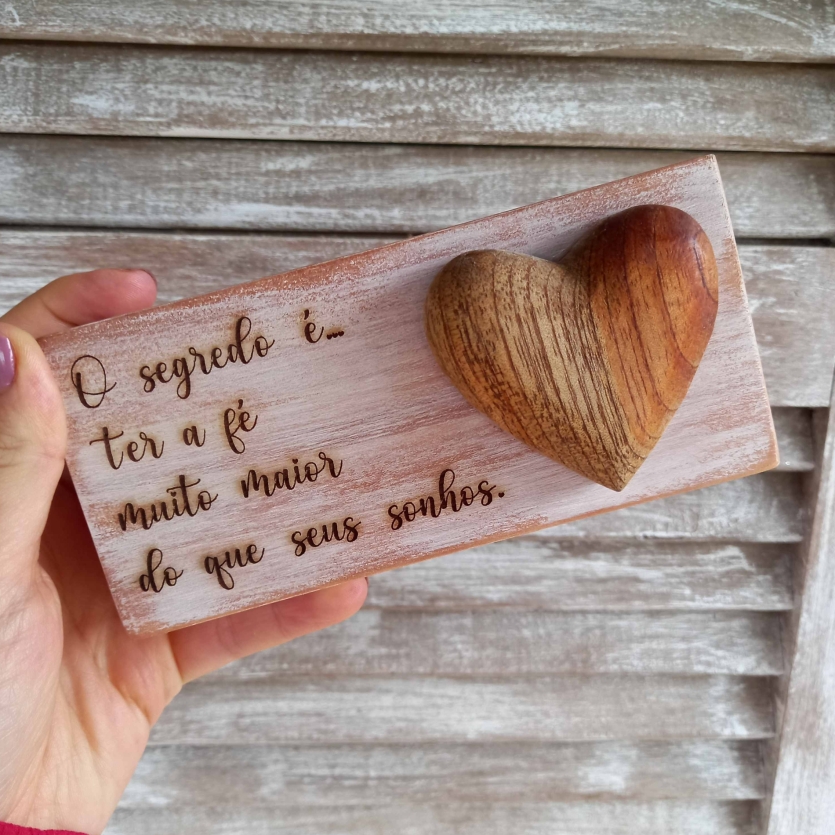 O segredo é...
ter a fé
muito maior
do que seus sonhos.